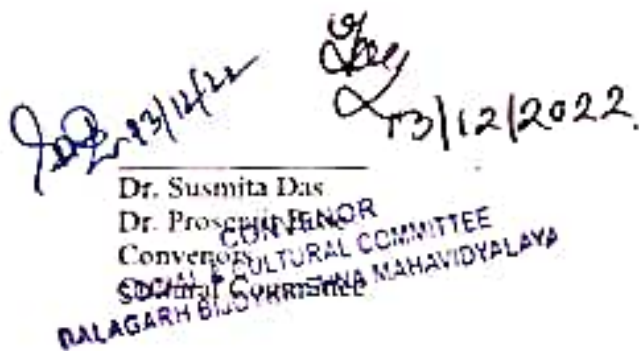 13/12/22
13/12/2022
Dr. Susmita Das
Dr. Prosenjit
Convenors
Cultural Committee
CONVENOR
SOCIAL & CULTURAL COMMITTEE
BALAGARH BIJOYKRISHNA MAHAVIDYALAYA